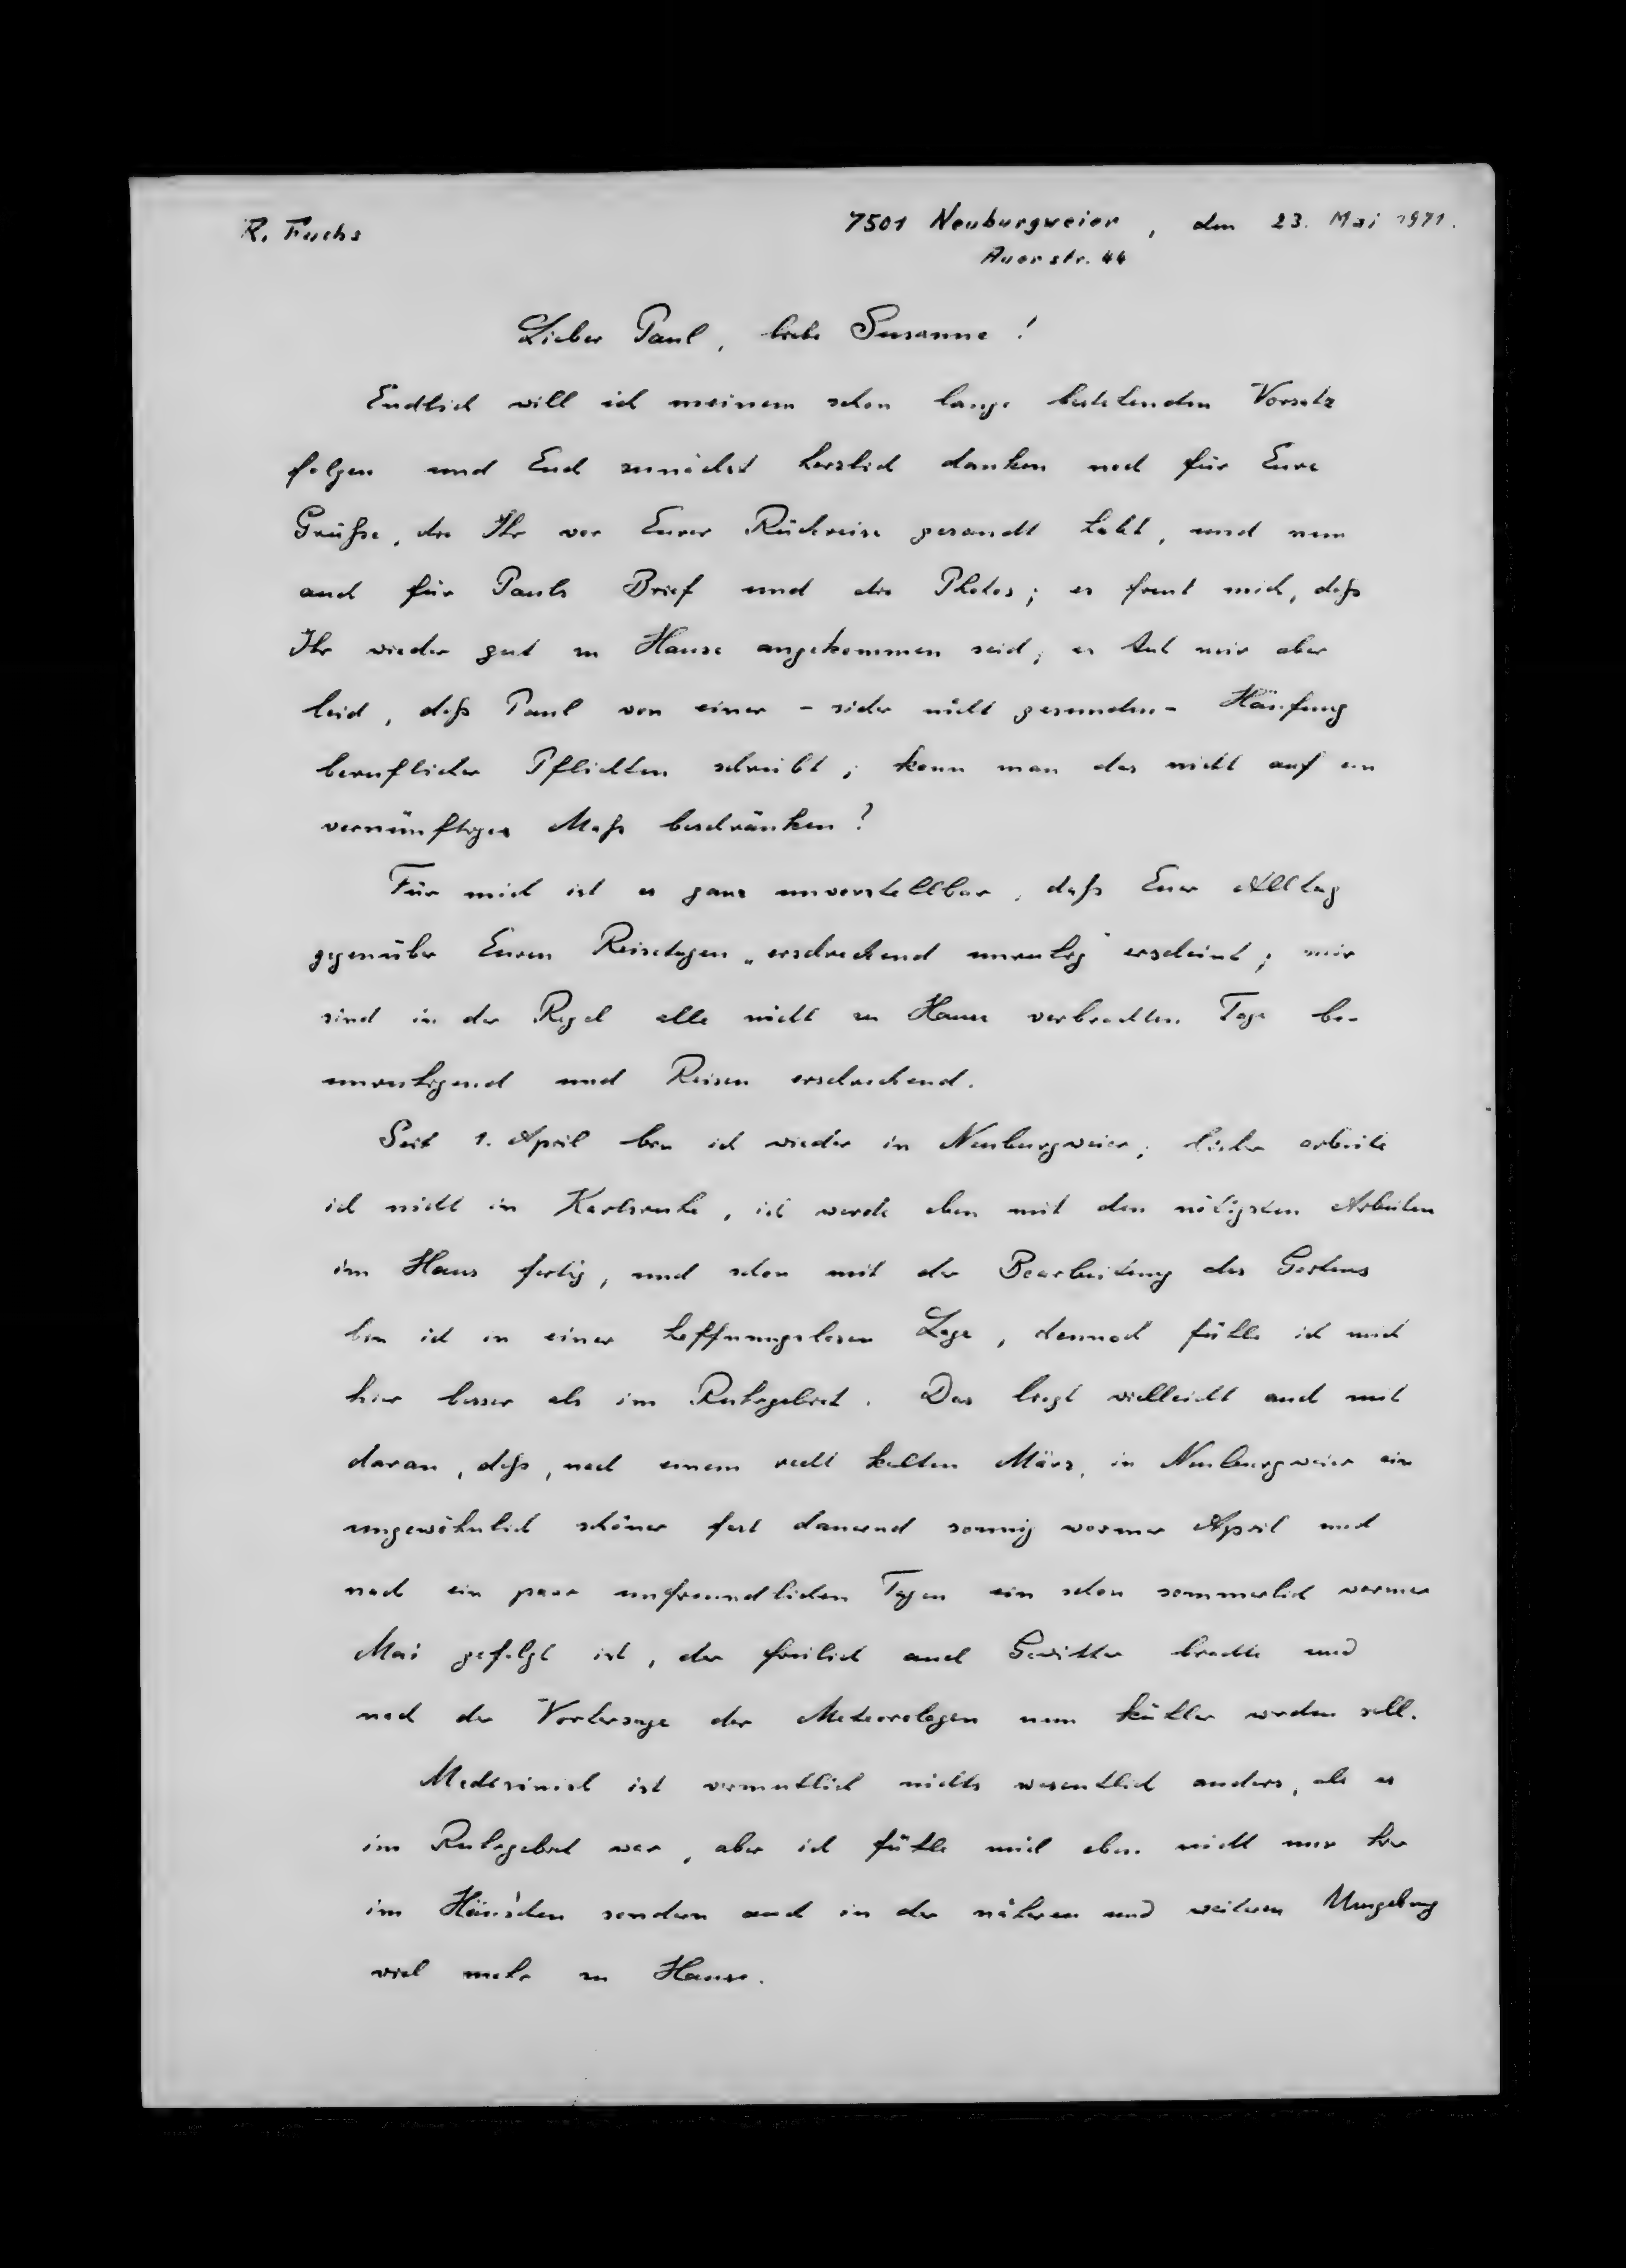 R. Fuchs
7501 Neuburgweier, den 23. Mai 1971.
Auerstr. 44
Lieber Paul, liebe Susanne!
Endlich will ich meinem schon lange bestehenden Vorsatz
folgen und Euch zunächst herzlich danken noch für Eure
Grüße, die Ihr vor Eurer Rückreise gesandt habt, und nun
auch für Pauls Brief und die Photos; es freut mich, daß
Ihr wieder gut zu Hause angekommen seid; es tut mir aber
leid, daß Paul von einer - sicher nicht gesunden - Häufung
beruflicher Pflichten schreibt; kann man das nicht auf ein
vernünftiges Maß beschränken?
Für mich ist es ganz unvorstellbar, daß Euer Alltag
gegenüber Euren Reisetagen „erschreckend unruhig" erscheint; mir
sind in der Regel alle nicht zu Hause verbrachten Tage be-
unruhigend und Reisen erschreckend.
Seit 1. April bin ich wieder in Neuburgweier; bisher arbeite
ich nicht in Karlsruhe, ich werde eben mit den nötigsten Arbeiten
im Haus fertig, und schon mit der Bearbeitung des Gartens
bin ich in einer hoffnungslosen Lage, dennoch fühle ich mich
hier besser als im Ruhrgebiet. Das liegt vielleicht auch mit
daran, daß, nach einem recht kalten März, in Neuburgweier ein
ungewöhnlich schöner fast dauernd sonnig warmer April und
nach ein paar unfreundlichen Tagen ein schon sommerlich warmer
Mai gefolgt ist, der freilich auch Gewitter brachte und
nach der Vorhersage der Meteorologen nun kühler werden soll.
Medizinisch ist vermutlich nichts wesentlich anders, als es
im Ruhrgebiet war, aber ich fühle mich eben nicht nur hier
im Häus'chen sondern auch in der näheren und weiteren Umgebung
viel mehr zu Hause.